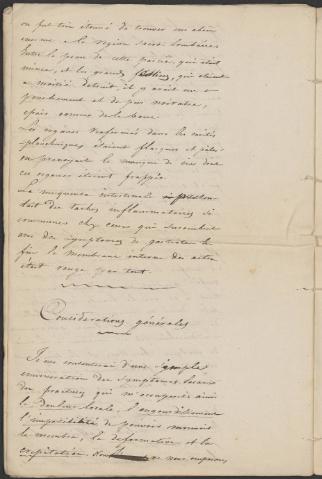 on fut très étonné de trouver un abcès
enorme a la region sacro lombaire
entre la peau de cette partie, qui était
mince, et les grands fessiers, qui étaient
a moitié détruit, il y avait un e
panchement et de pus noiratre,
épais comme de la boue.
Les organes renfermés dans les cavités
splanchniques étaient flasques et pales
en provoquant le manque de vie dont
ces organes étaient frappés.
La muqueuse intestinale présen
tait des taches inflammatoires si
communes chez ceux qui succombent
avec des symptomes de gastrite le
fin la membrane interne des artères
était rouge par tout.
Considérations générales
Je me contenterai d'une simple
enumeration des symptomes locaux
des fractures qui m'occupent ainsi
la douleur locale, l'engourdissement
l'impossibilité de pouvoir mouvoir
le membre, la deformation et la
crepitation. nous